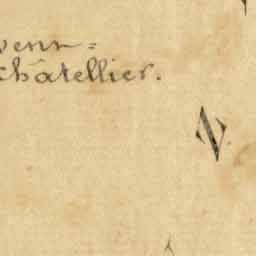 venn=
châtellier.
N.